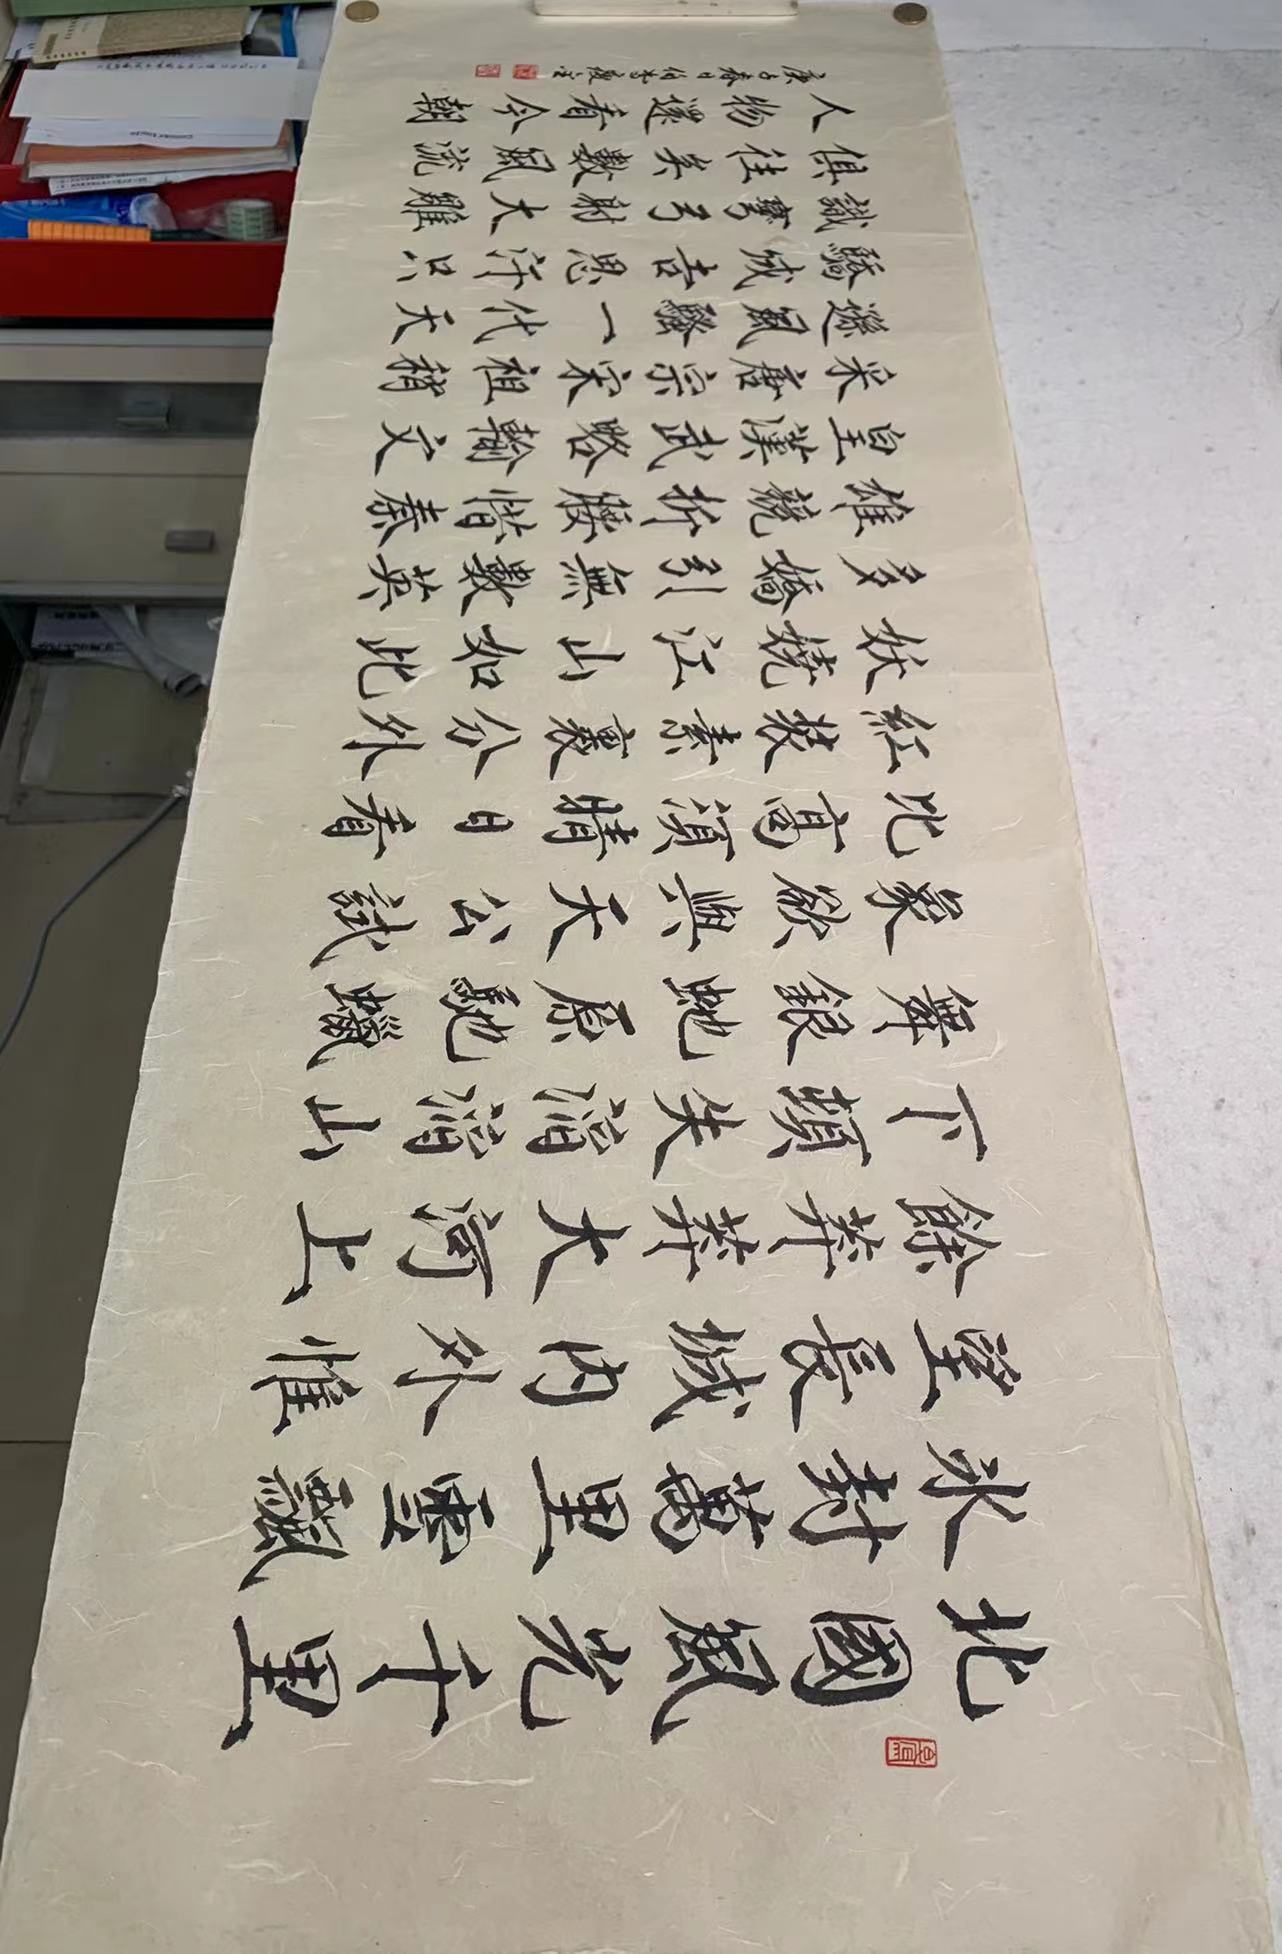 北國風光千里
冰封萬里雪飄
望長城内外惟
餘莽莽大河上
下頓失滔滔山
舞銀蛇原馳蠟
象欲與天公試
比高須晴日看
紅裝素裹分外
妖嬈江山如此
多嬌引無數英
雄競折腰惜秦
皇漢武略輸文
采唐宗宋祖稍
遜風騷一代天
驕成吉思汗只
識彎弓射大雕
俱往矣數風流
人物還看今朝
庚子春日